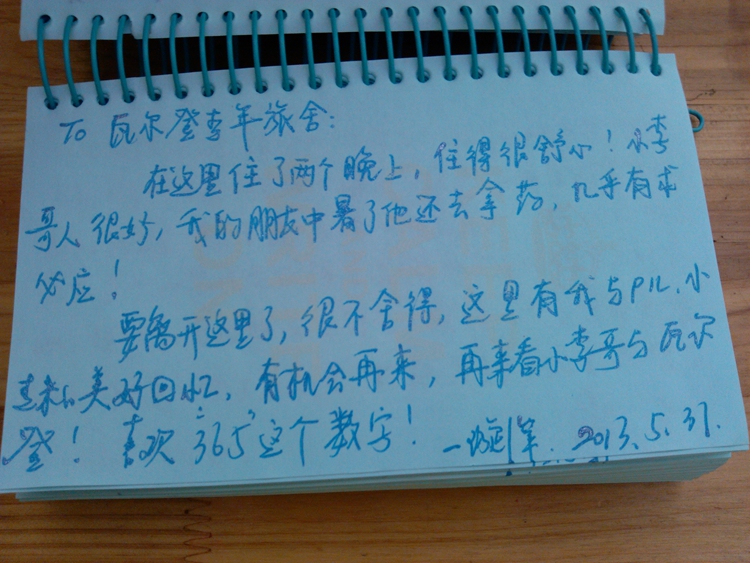 To 瓦尔登青年旅舍:
在这里住了两个晚上,住得很舒心!小李
哥人很好,我的朋友中暑了他还去拿药,几乎有求
必应!
要离开这里了,很不舍得,这里有我与PIL、小
美好回忆,有机会再来,再来看小李哥与瓦尔
登!喜欢“365”这个数字!
2013.5.31.